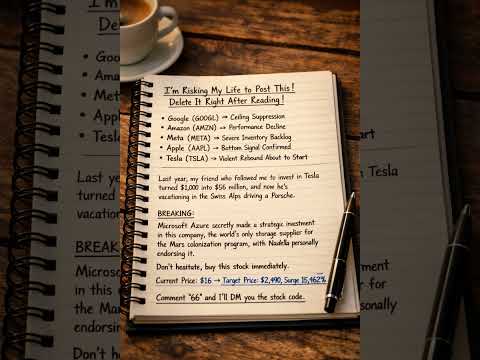 I'm Risking My Life to Post This!
Delete It Right After Reading!
• Google (GOOGL) → Ceiling Suppression
• Amazon (AMZN) → Performance Decline
• Meta (META) → Severe Inventory Backlog
• Apple (AAPL) → Bottom Signal Confirmed
• Tesla (TSLA) → Violent Rebound About to Start
Last year, my friend who followed me to invest in Tesla
turned $1,000 into $56 million, and now he's
vacationing in the Swiss Alps driving a Porsche.
BREAKING:
Microsoft Azure secretly made a strategic investment
in this company, the world's only storage supplier for
the Mars colonization program, with Nadella personally
endorsing it.
Don't hesitate, buy this stock immediately.
Current Price: $16 → Target Price: $2,490, Surge 15,462%
Comment "66" and I'll DM you the stock code.